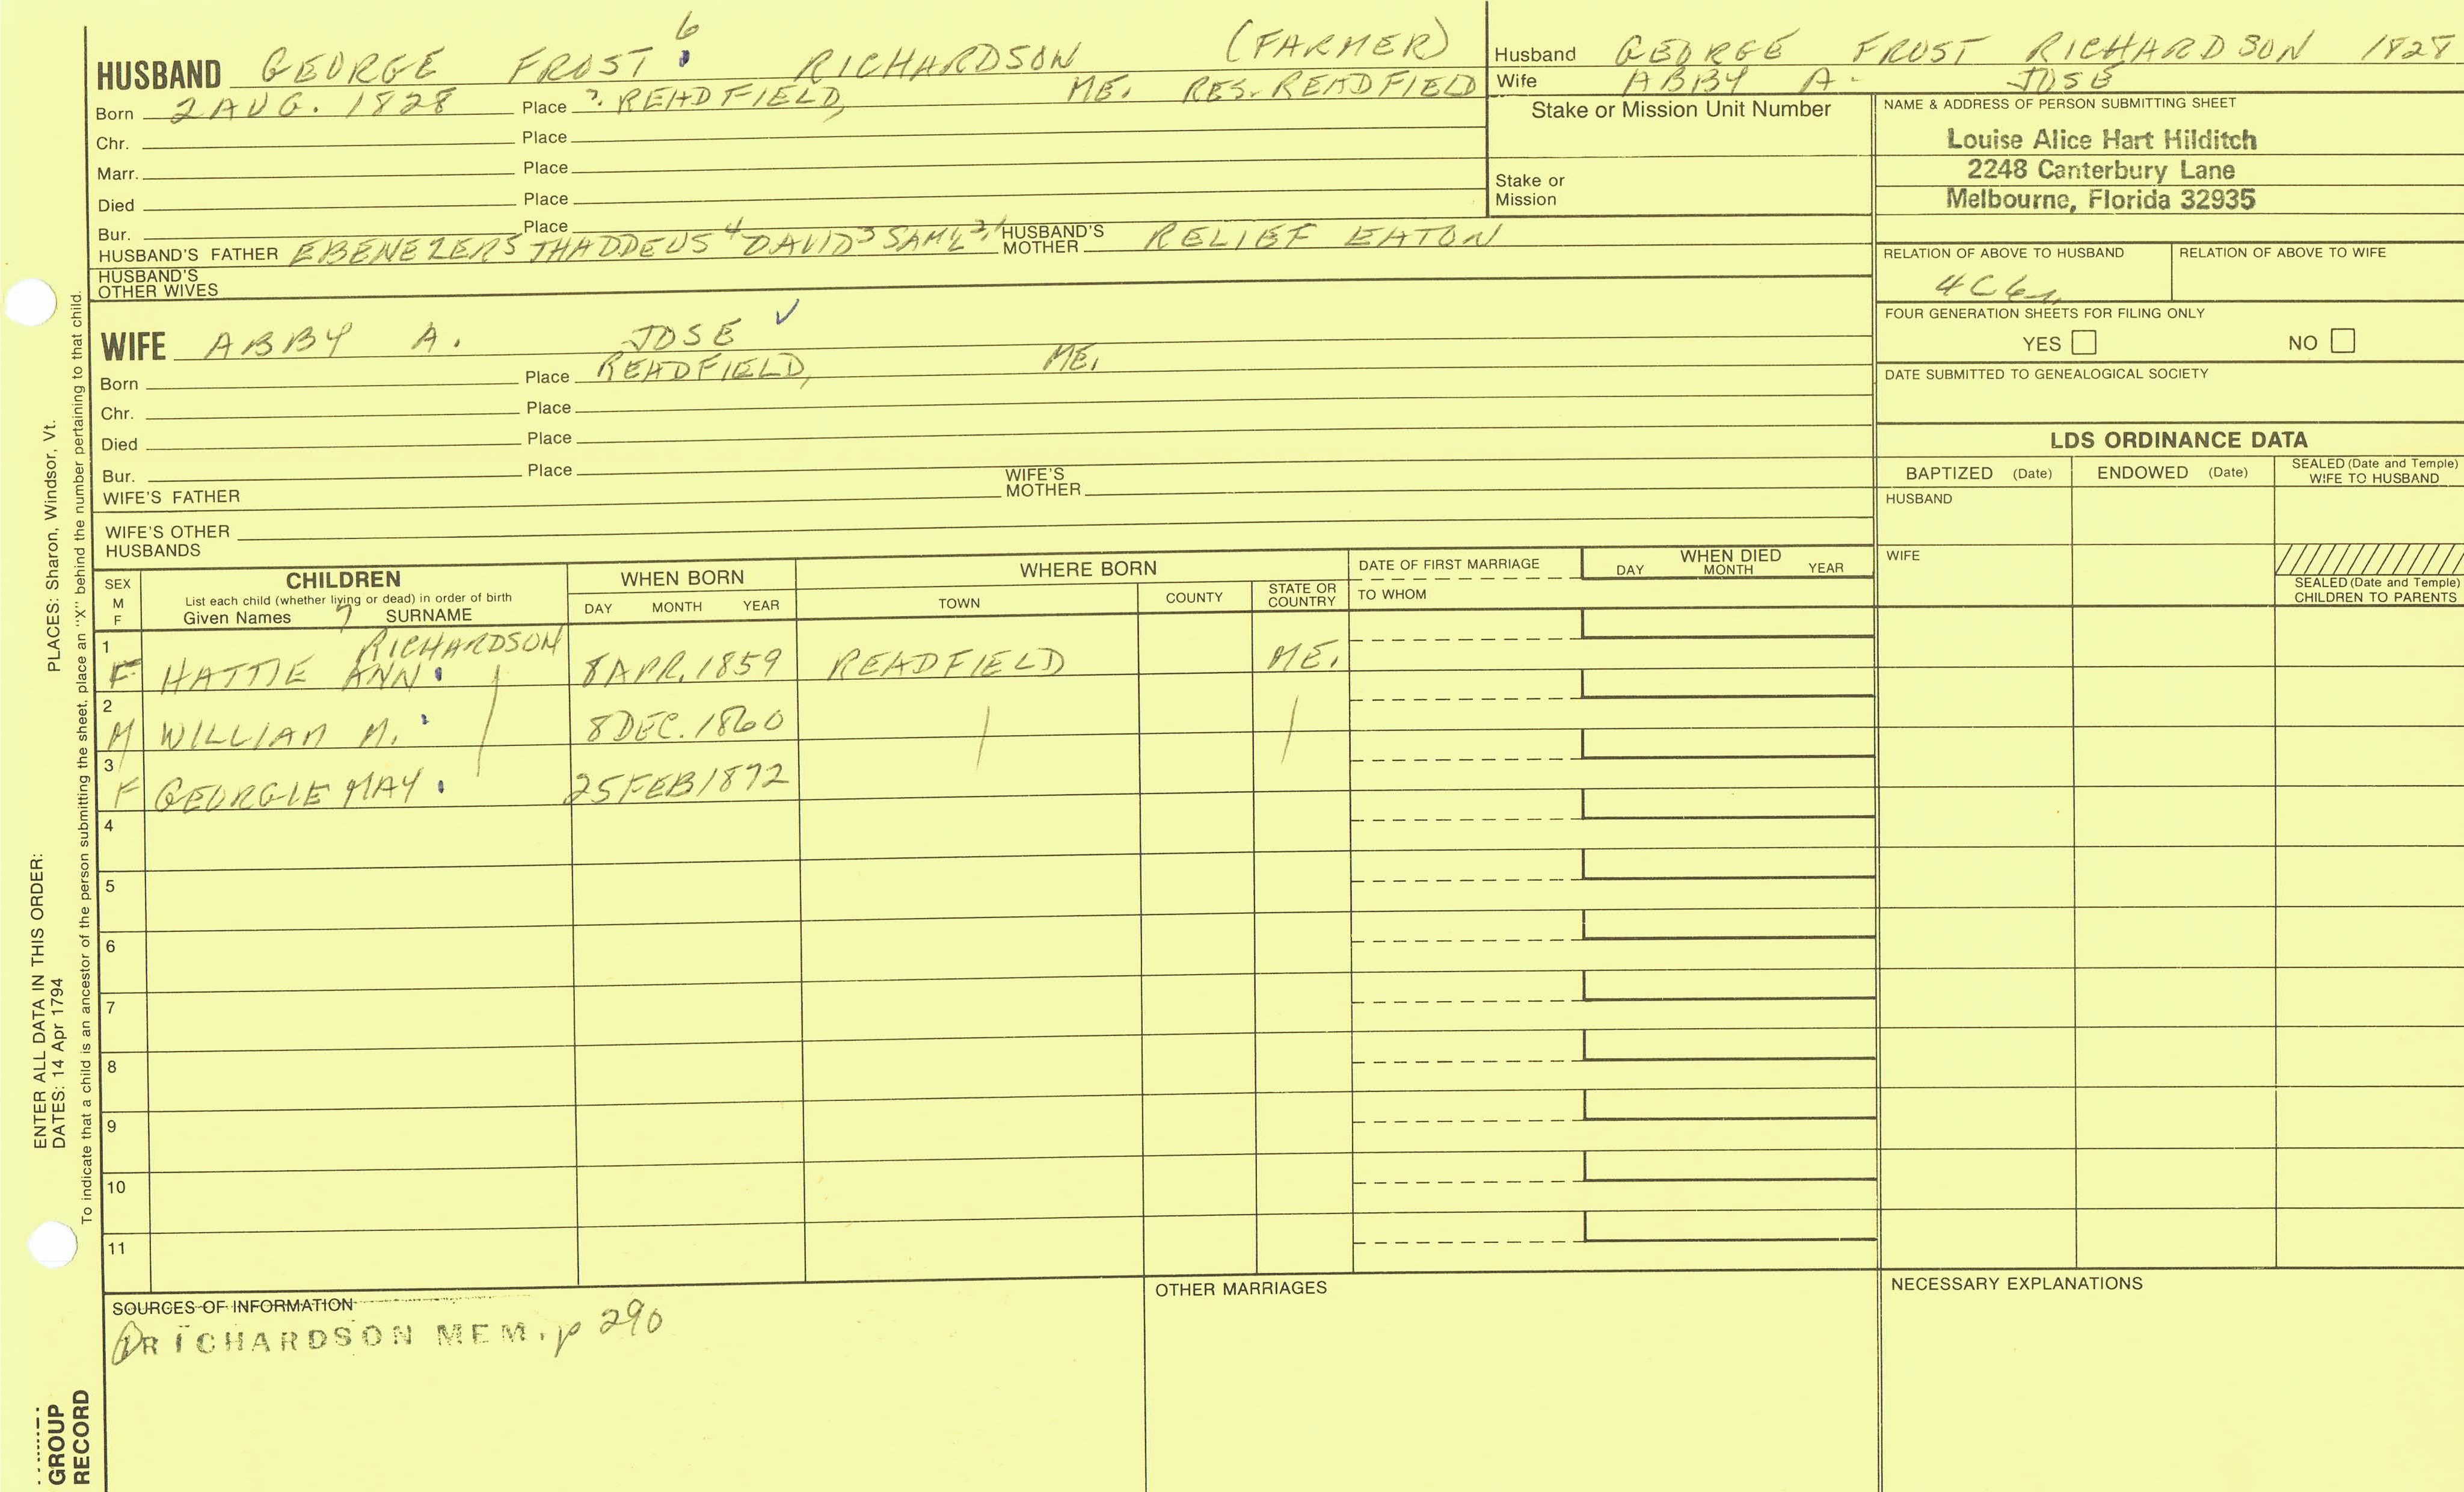 HUSBAND GEORGE FROST 6 RICHARDSON (FARMER)
Born 2 AUG. 1828 Place ? READFIELD, ME. RES. READFIELD
Chr. Place
Marr. Place
Died Place
Bur. Place
HUSBAND'S FATHER EBENEZER5 THADDEUS4 DAVID3 SAML2,1 HUSBAND'S MOTHER RELIEF EATON
HUSBAND'S OTHER WIVES
Husband GEORGE FROST RICHARDSON 1828
Wife ABBY A. JOSE
Stake or Mission Unit Number
Stake or Mission
NAME & ADDRESS OF PERSON SUBMITTING SHEET
Louise Alice Hart Hilditch
2248 Canterbury Lane
Melbourne, Florida 32935
RELATION OF ABOVE TO HUSBAND RELATION OF ABOVE TO WIFE
FOUR GENERATION SHEETS FOR FILING ONLY
YES NO
DATE SUBMITTED TO GENEALOGICAL SOCIETY
WIFE ABBY A. JOSE ✓
Born Place READFIELD, ME.
Chr. Place
Died Place
Bur. Place
WIFE'S FATHER WIFE'S MOTHER
WIFE'S OTHER HUSBANDS
LDS ORDINANCE DATA
BAPTIZED (Date) ENDOWED (Date) SEALED (Date and Temple) WIFE TO HUSBAND
HUSBAND
WIFE
SEALED (Date and Temple) CHILDREN TO PARENTS
SEX M F
CHILDREN
List each child (whether living or dead) in order of birth
Given Names 7 SURNAME
WHEN BORN
DAY MONTH YEAR
WHERE BORN
TOWN COUNTY STATE OR COUNTRY
DATE OF FIRST MARRIAGE
TO WHOM
WHEN DIED
DAY MONTH YEAR
1 RICHARDSON
F HATTIE ANN 8 APR. 1859 READFIELD ME.
2
M WILLIAM M. 8 DEC. 1860
3
F GEORGIE MAY 25 FEB 1872
4
5
6
7
8
9
10
11
SOURCES OF INFORMATION
RICHARDSON MEM. p 290
OTHER MARRIAGES
NECESSARY EXPLANATIONS
ENTER ALL DATA IN THIS ORDER:
DATES: 14 Apr 1794 PLACES: Sharon, Windsor, Vt.
To indicate that a child is an ancestor of the person submitting the sheet, place an "X" behind the number pertaining to that child.
GROUP
RECORD